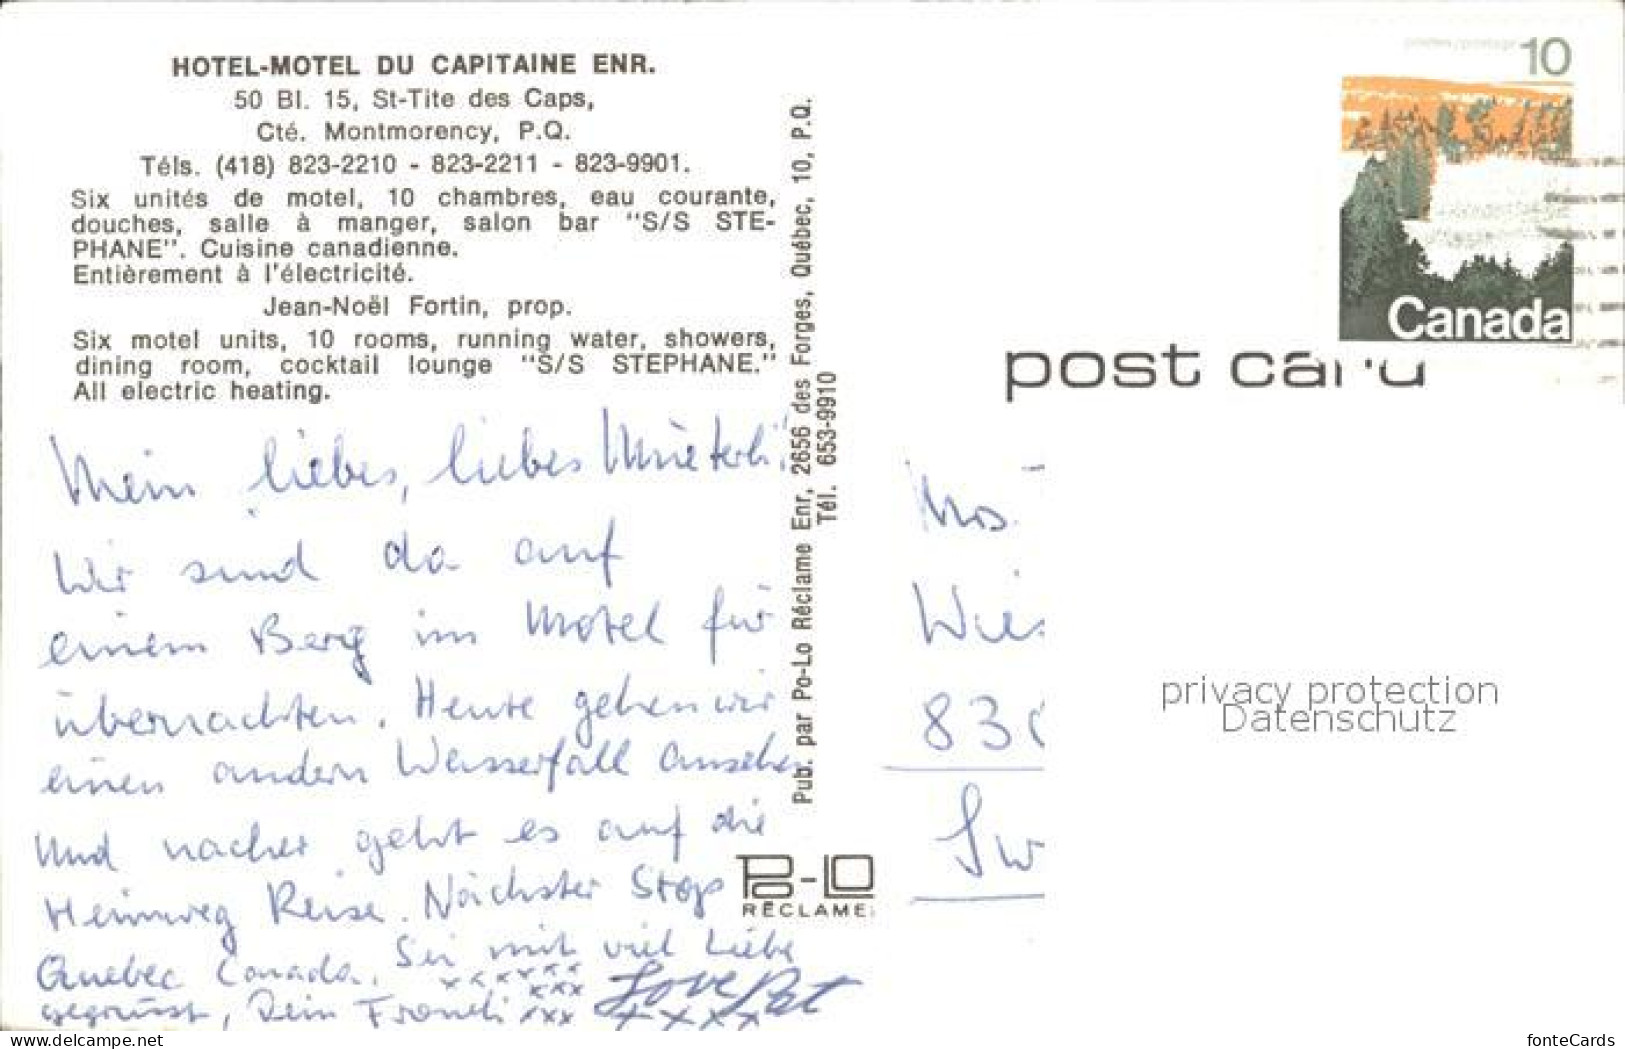 HOTEL-MOTEL DU CAPITAINE ENR.
50 Bl. 15, St-Tite des Caps,
Cté. Montmorency, P.Q.
Téls. (418) 823-2210 - 823-2211 - 823-9901.
Six unités de motel, 10 chambres, eau courante,
douches, salle à manger, salon bar "S/S STE-
PHANE". Cuisine canadienne.
Entièrement à l'électricité.
Jean-Noël Fortin, prop.
Six motel units, 10 rooms, running water, showers,
dining room, cocktail lounge "S/S STEPHANE."
All electric heating.
Mein liebes, liebes Mueterli!
Wir sind da auf
einem Berg im Motel für
übernachten. Heute gehen wir
einen andern Wasserfall ansehen
Und nacher geht es auf die
Heimweg Reise. Nächster Stop
Quebec Canada. Sei mit viel Liebe
gegrüsst, Dein Fraueli
xxxxxx
xxx
xxx
Love Pat
xxxx
Pub. par Po-Lo Réclame Enr, 2656 des Forges, Québec, 10, P.Q.
Tél. 653-9910
PO-LO
RÉCLAME
postes/postage 10
Canada
post card
Wies
830
Sw
privacy protection
Datenschutz
www.delcampe.net
fonteCards